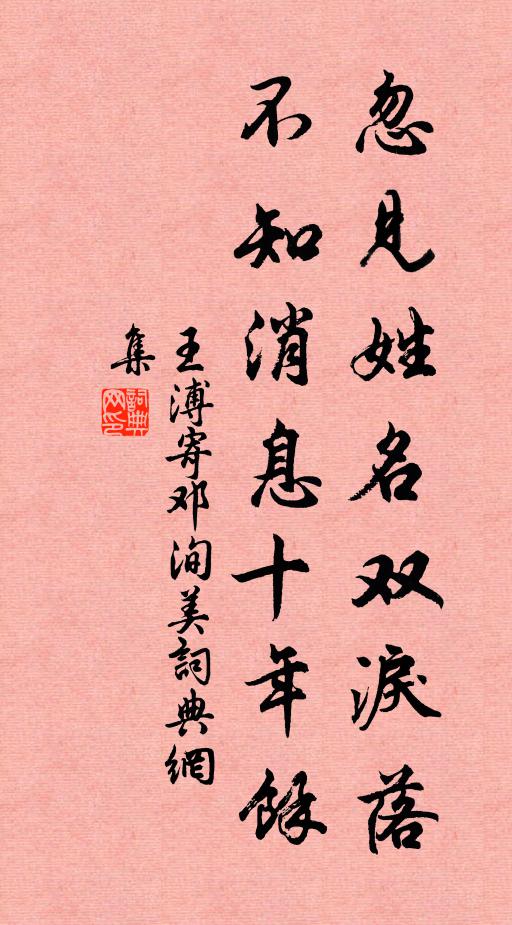 忽见姓名双淚落
不知消息十年餘
王溥寄邓洵美詞典網
集
詞典网印